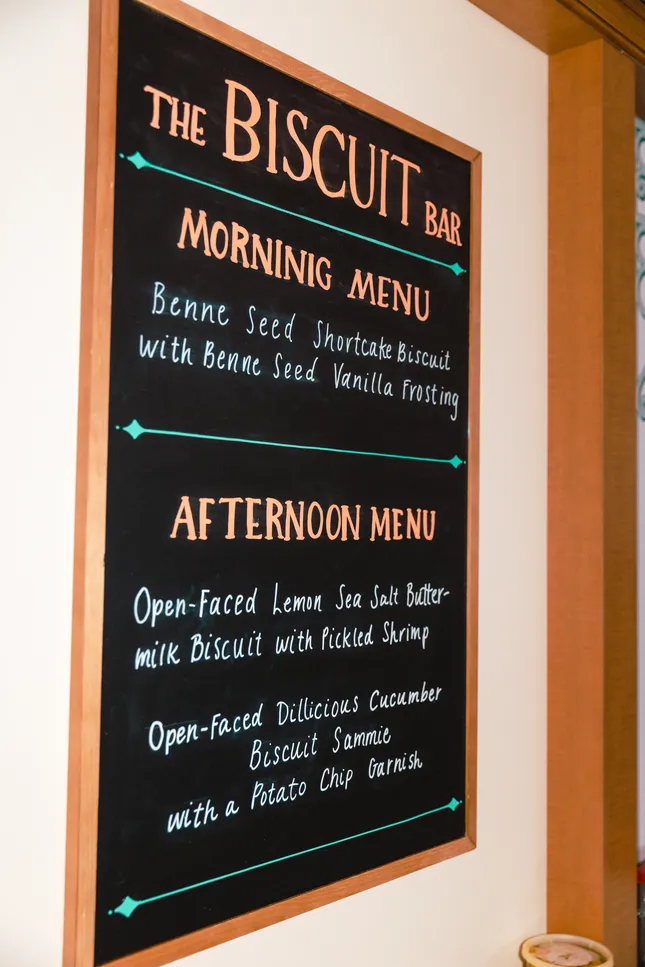 THE BISCUIT BAR
MORNINIG MENU
Benne Seed Shortcake Biscuit
with Benne Seed Vanilla Frosting
AFTERNOON MENU
Open-Faced Lemon Sea Salt Butter-
milk Biscuit with Pickled Shrimp
Open-Faced Dillicious Cucumber
Biscuit Sammie
with a Potato Chip Garnish